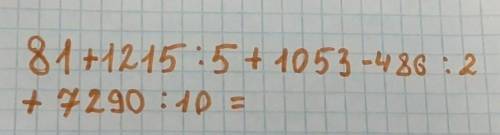 81+1215:5+1053-486:2
+7290:10=